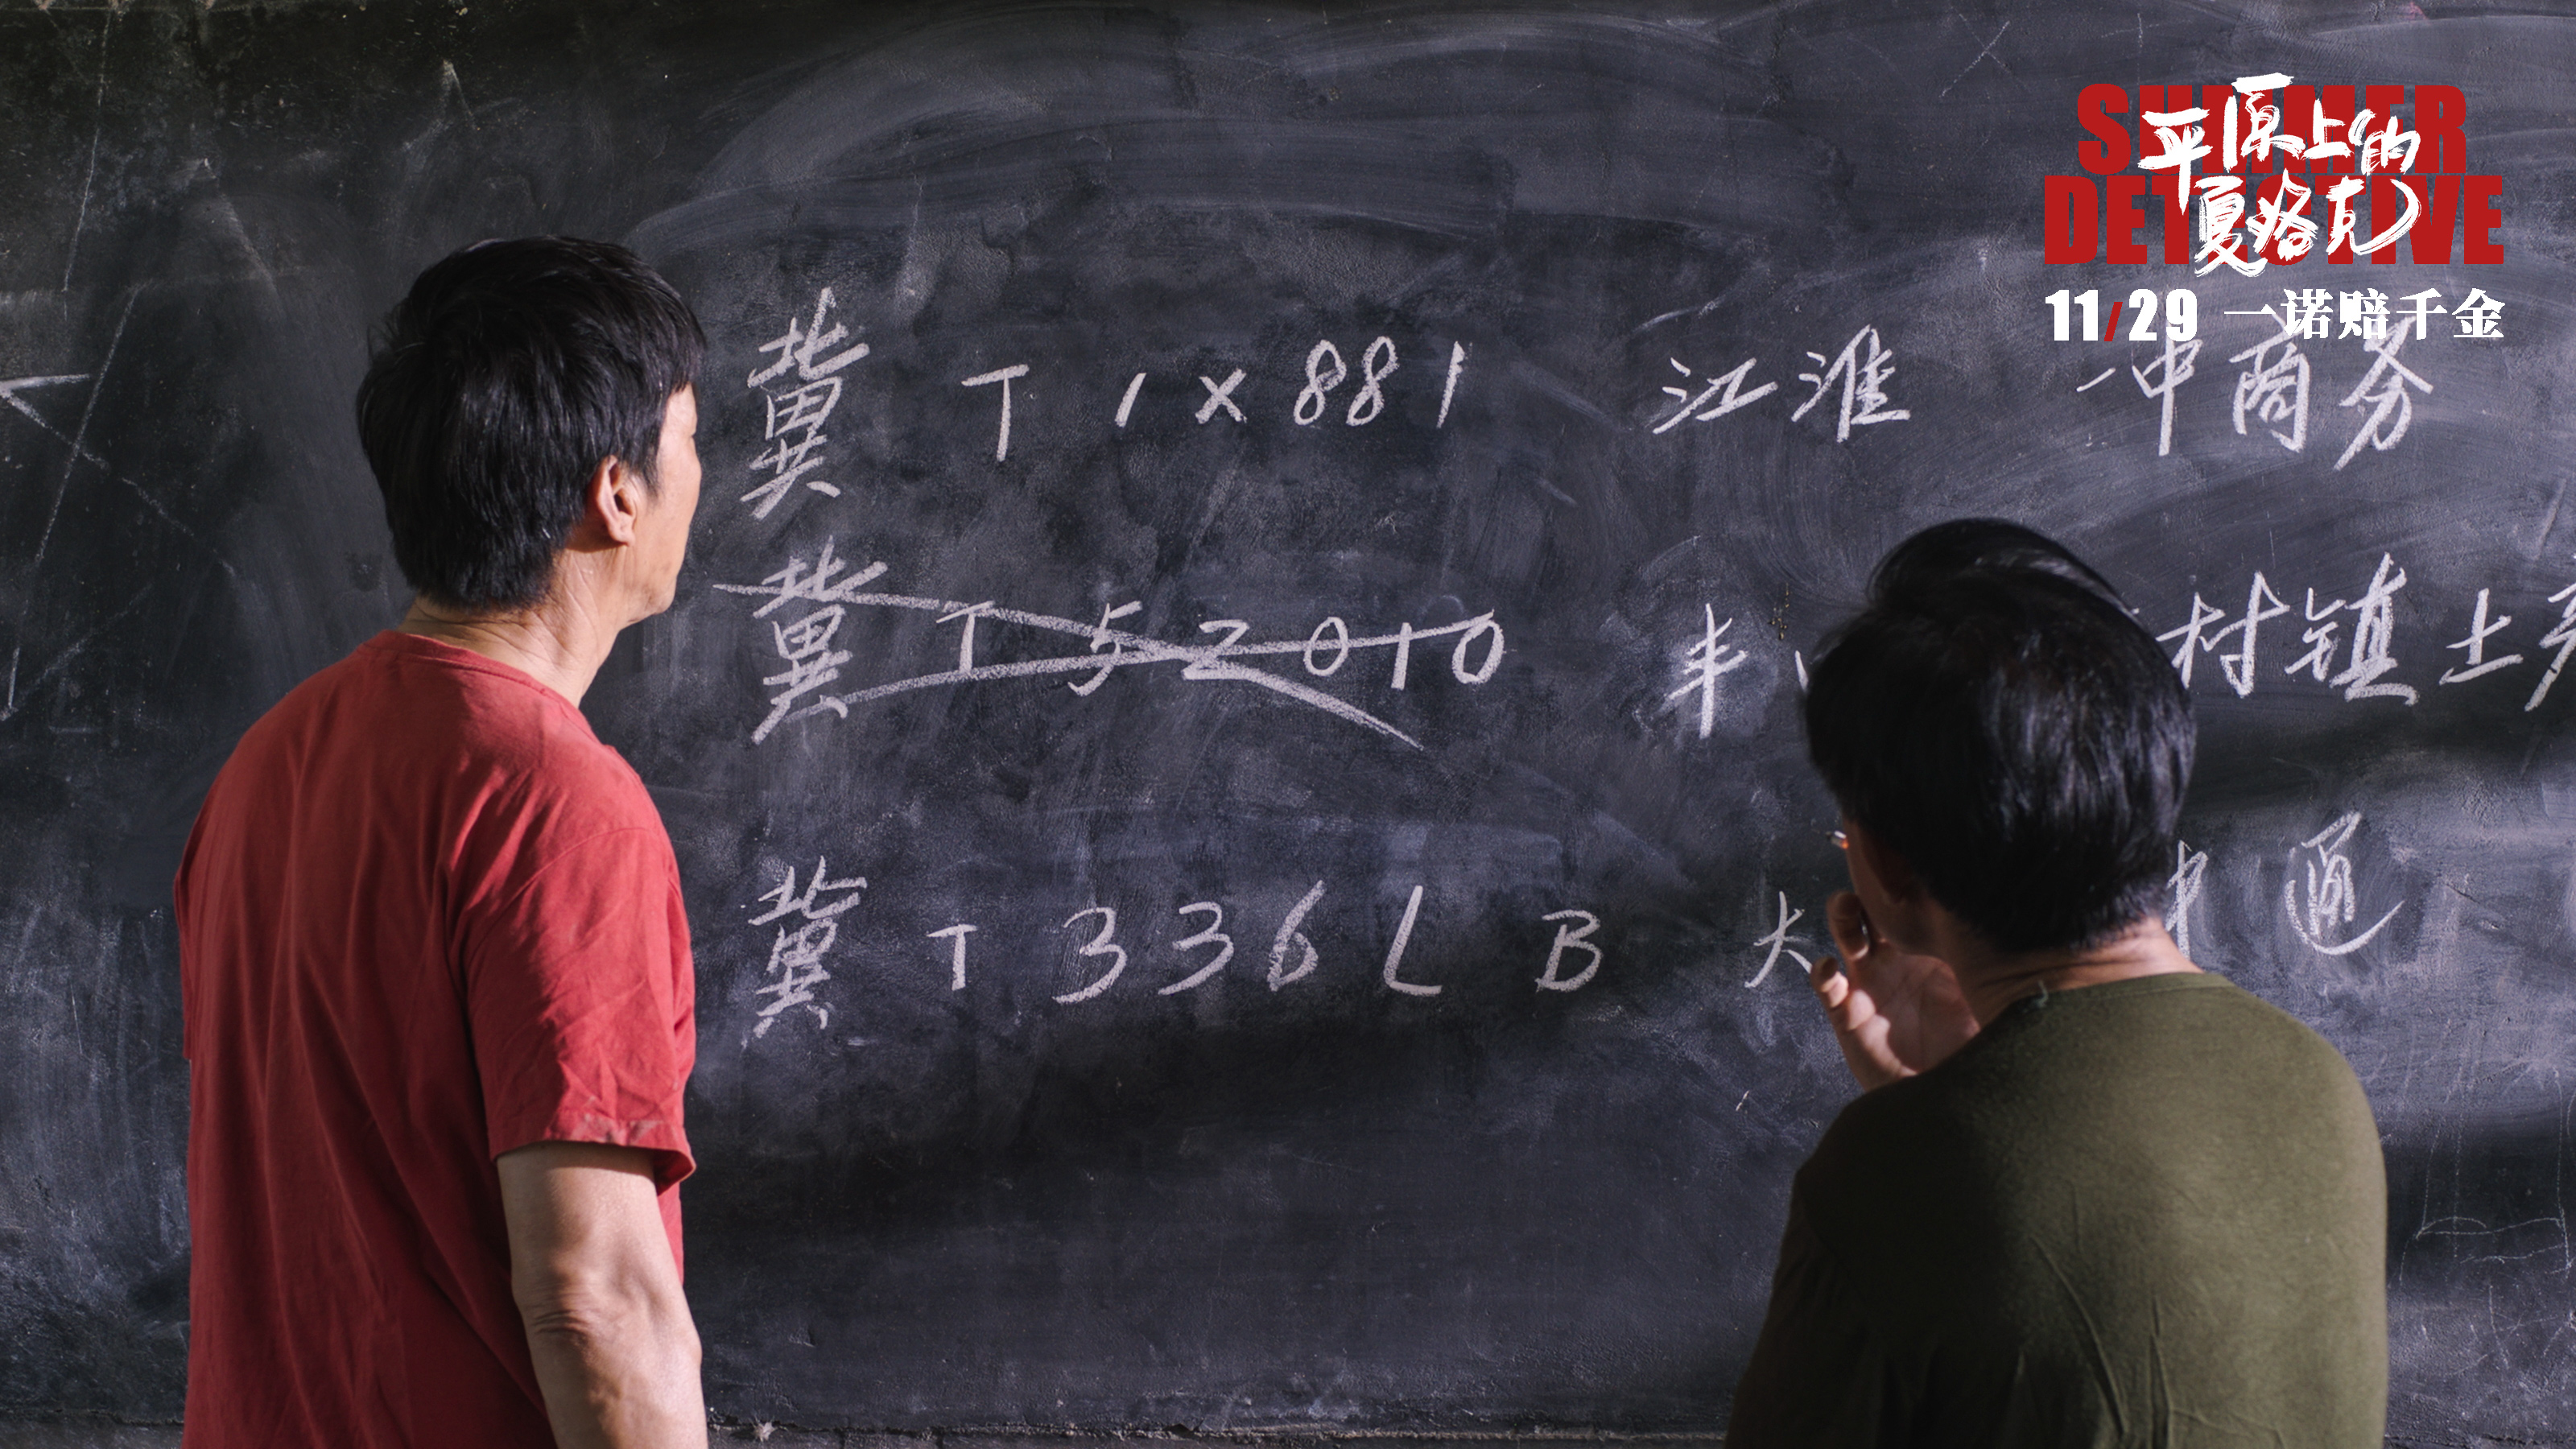 SUMMER
DETECTIVE
平原上的
夏洛克
11/29 一诺赔千金
冀 T 1 X 881 江淮 一中商务
冀 T 5 2 0 1 0 丰 村镇土
冀 T 3 3 6 L B 大 中通